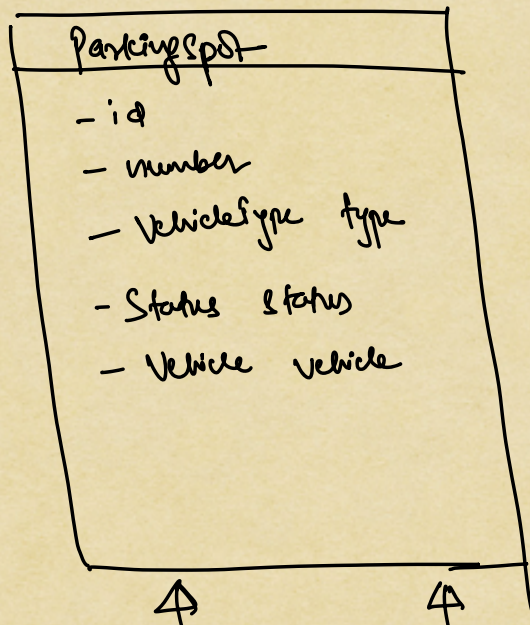 ParkingSpot
- id
- number
- VehicleType type
- Status status
- Vehicle vehicle